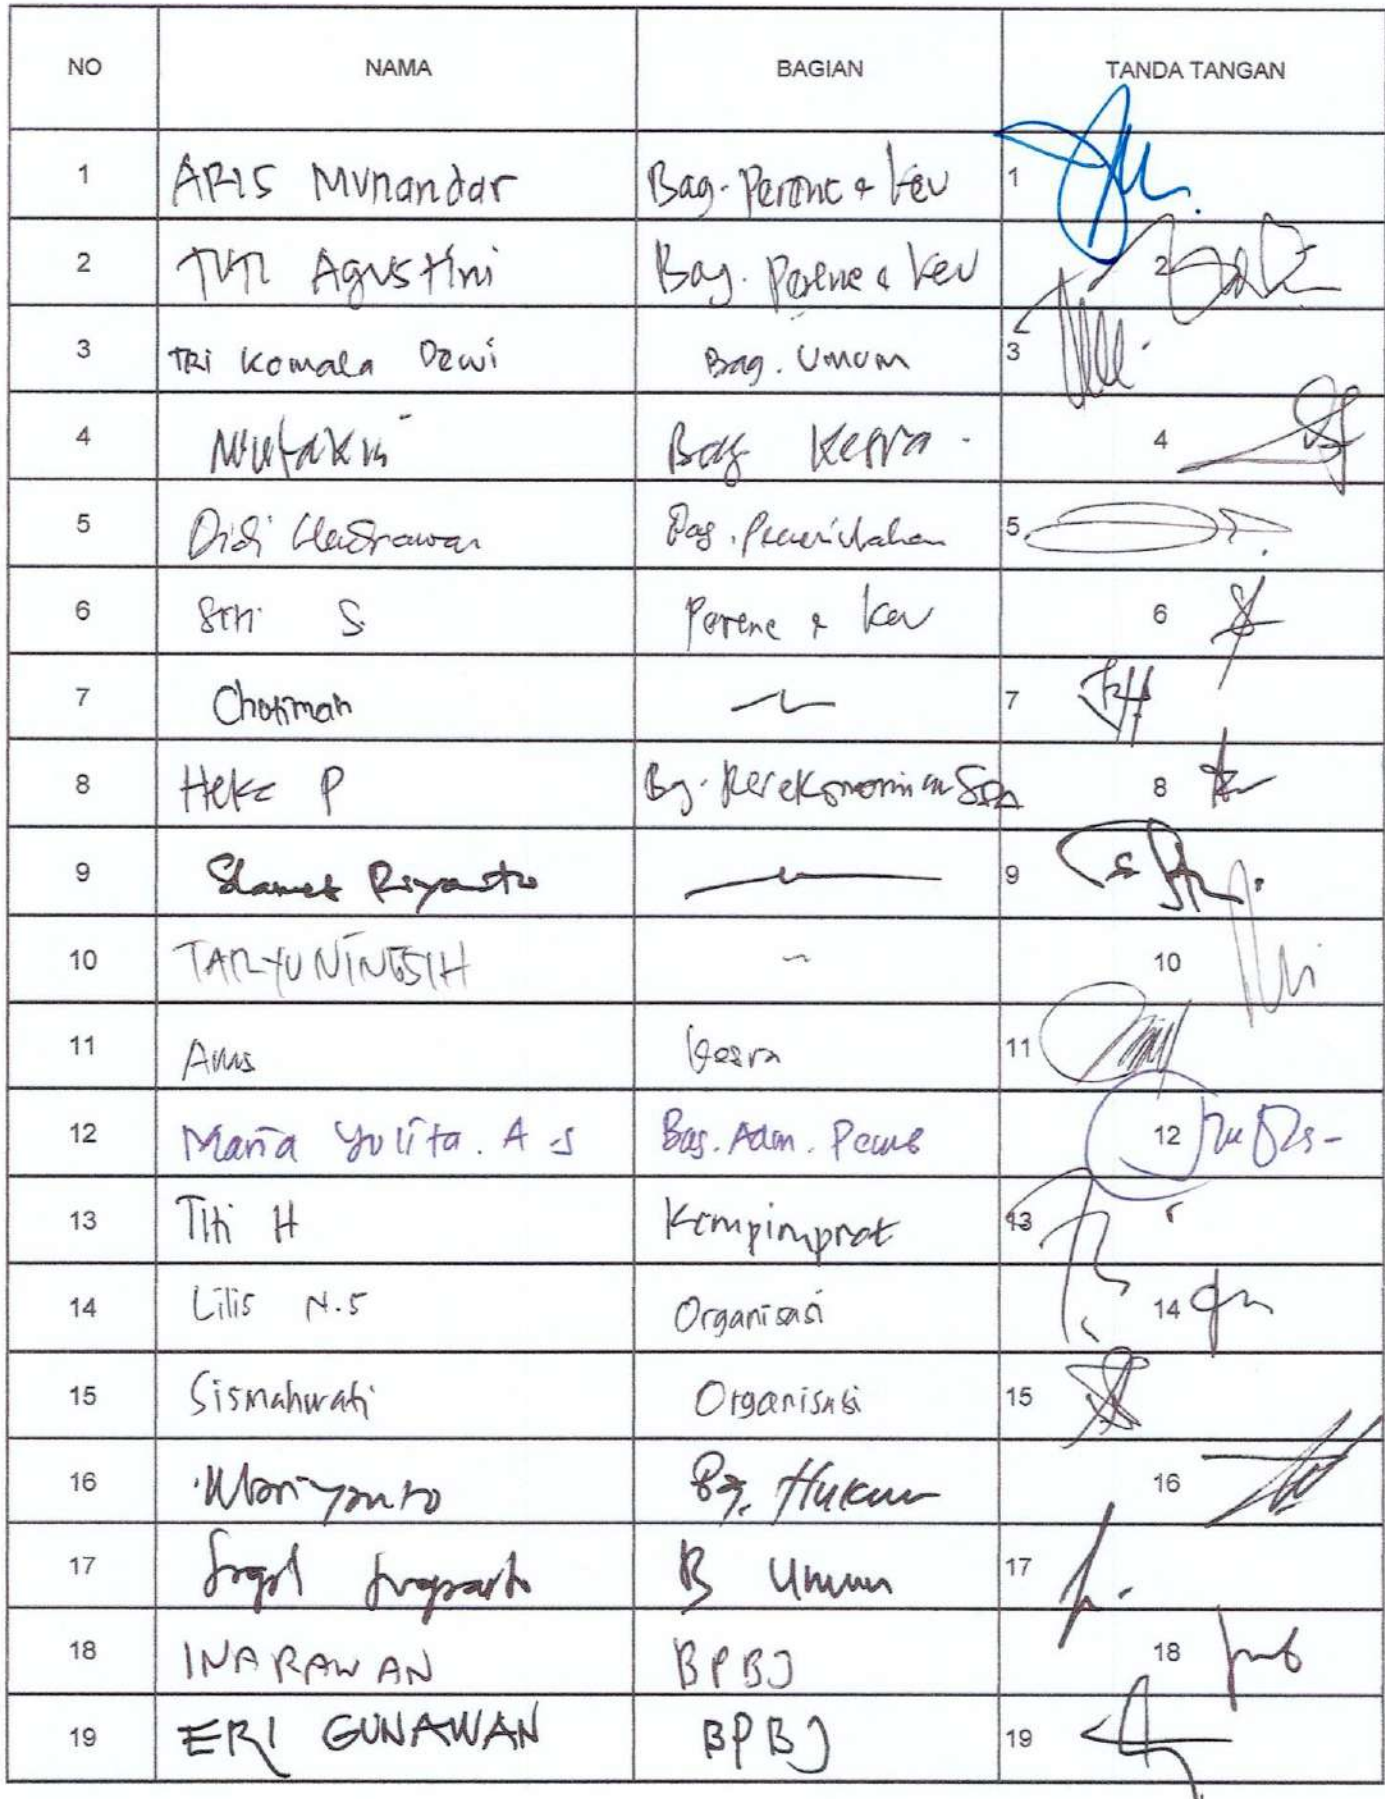 NO NAMA BAGIAN TANDA TANGAN
1 ARIS Munandar Bag. Perenc & keu 1
2 TUTI Agustini Bag. Perenc & keu 2
3 TRI Komala Dewi Bag. Umum 3
4 Bag Kesra 4
5 Didi Bag. Pemerintahan 5
6 Sitri S. Perenc & keu 6
7 Chotimah 7
8 P Bg. Perekonomian SDA 8
9 Slamet Riyanto 9
10 TARYUNINGSIH 10
11 Kesra 11
12 Maria Yulita. A S Bag. Adm. 12
13 Titi H 13
14 Lilis N.S Organisasi 14
15 Sismahwati Organisasi 15
16 Bg. Hukum 16
17 B Umum 17
18 INARAWAN BPBJ 18
19 ERI GUNAWAN BPBJ 19